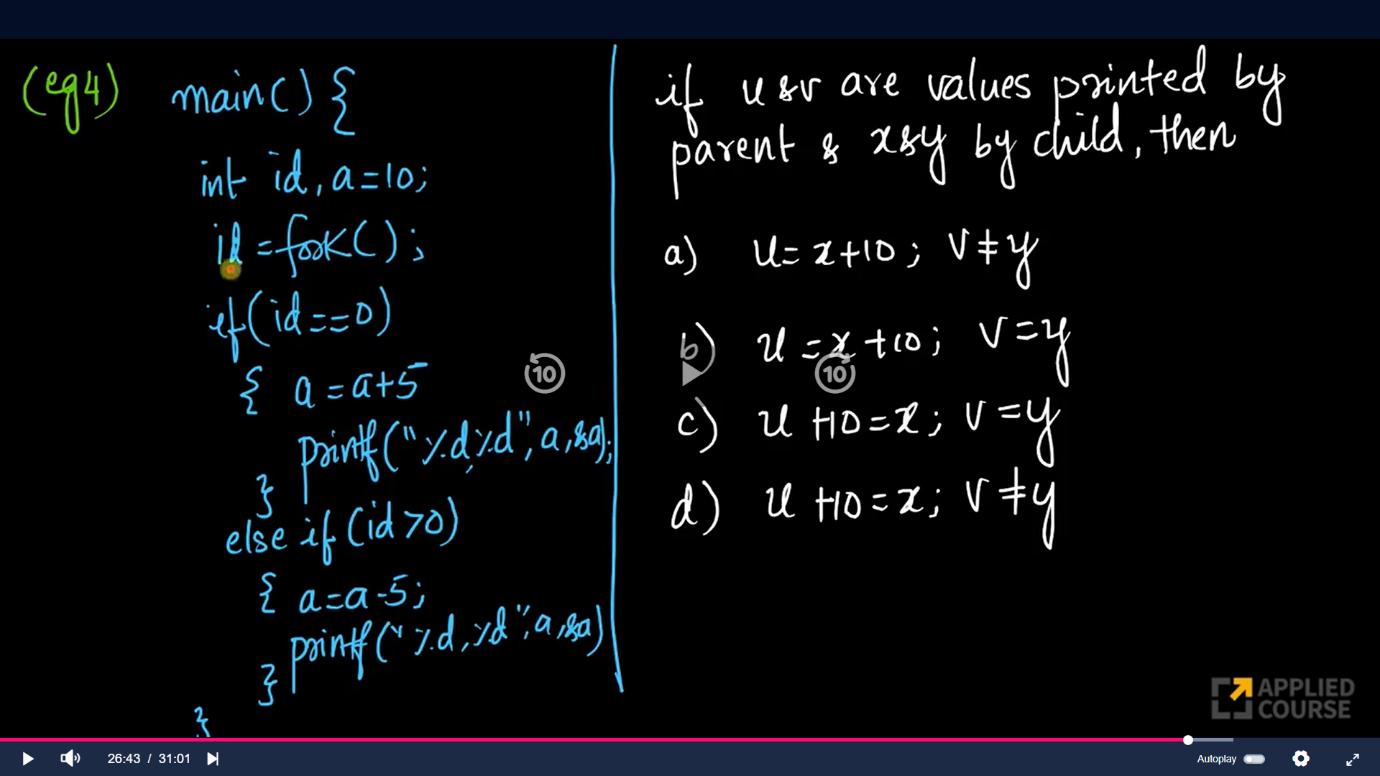 (eg4)
main() {
int id, a=10;
id = fork();
if(id==0)
{ a = a+5
printf("%d,%d", a, &a);
}
else if (id>0)
{ a=a-5;
printf("%d,%d", a, &a)
}
}
if u & v are values printed by
parent & x&y by child, then
a) u = x+10; v≠y
b) u = x+10; v=y
c) u+10=x; v=y
d) u+10=x; v≠y
10
10
APPLIED
COURSE
26:43 / 31:01
Autoplay